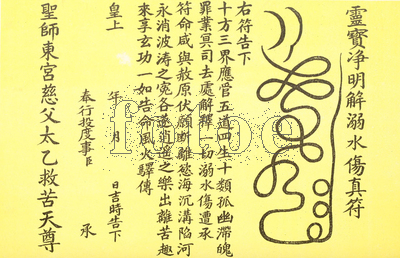 靈寶净明解溺水傷真符
右符告下
十方三界應管五道四生十類孤幽滯魄
罪業冥司去處解釋一切溺水傷遭承
符命咸與赦原伏願斷離愁海沉溝陷河
永消波涛之寃各遂逍遙之樂出離苦趣
來享玄功一如告命風火驛傳
皇上 年 月 日吉時告下
奉行投度事臣 承
聖師東宮慈父太乙救苦天尊